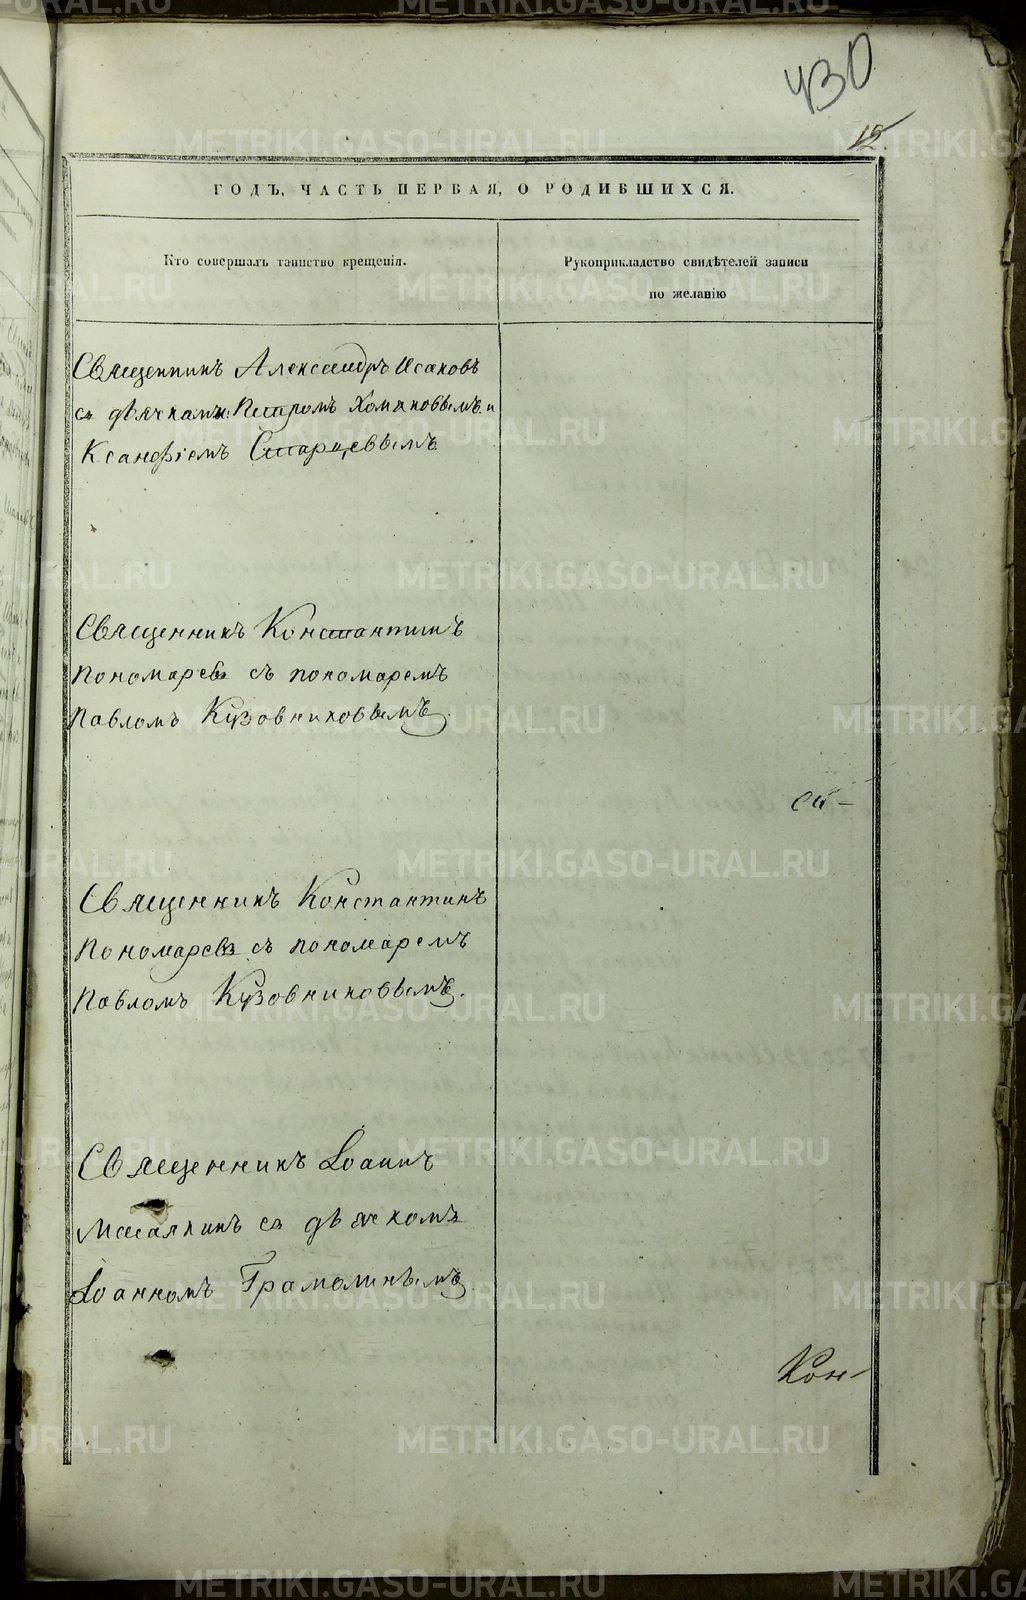 430
12.
ГОДЪ, ЧАСТЬ ПЕРВАЯ, О РОДИВШИХСЯ.
Кто совершалъ таинство крещенія.
Рукоприкладство свидѣтелей записи
по желанію
Священникъ Александръ Исаковъ
съ дьячками: Петромъ Хомяковымъ и
Ксанфіемъ Старцевымъ
Священникъ Константинъ
Пономаревъ съ пономаремъ
Павломъ Кузовниковымъ.
Священникъ Константинъ
Пономаревъ съ пономаремъ
Павломъ Кузовниковымъ.
Священникъ Іоаннъ
съ дьячкомъ
Іоанномъ Грамолинымъ.
Кон-
METRIKI.GASO-URAL.RU